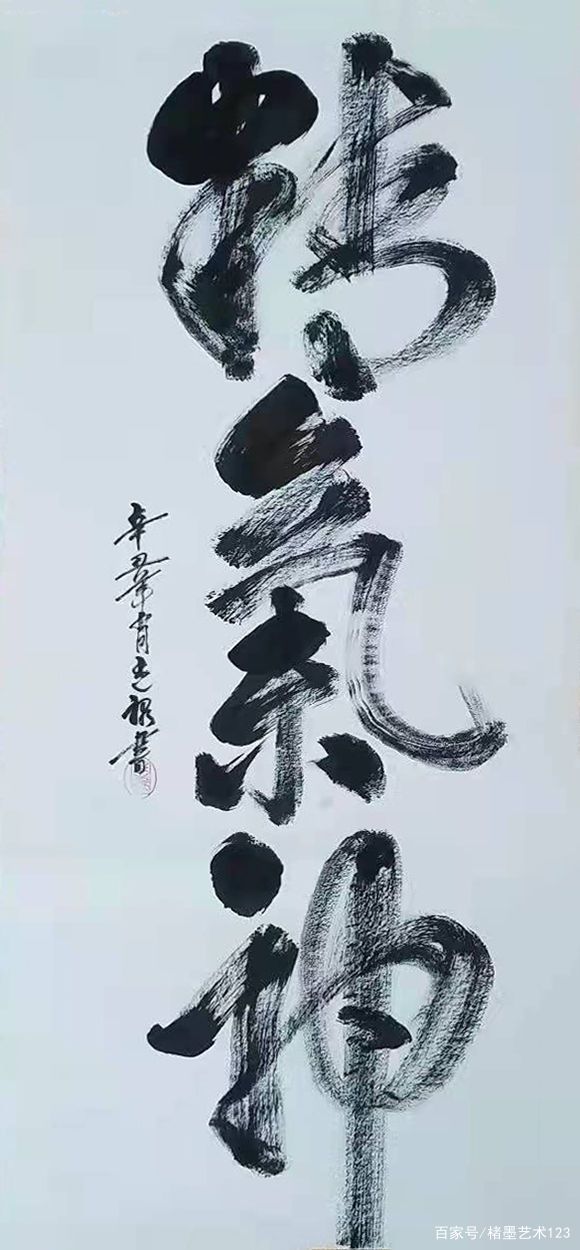 精氣神
辛丑年肖書
百家号/楮墨艺术123